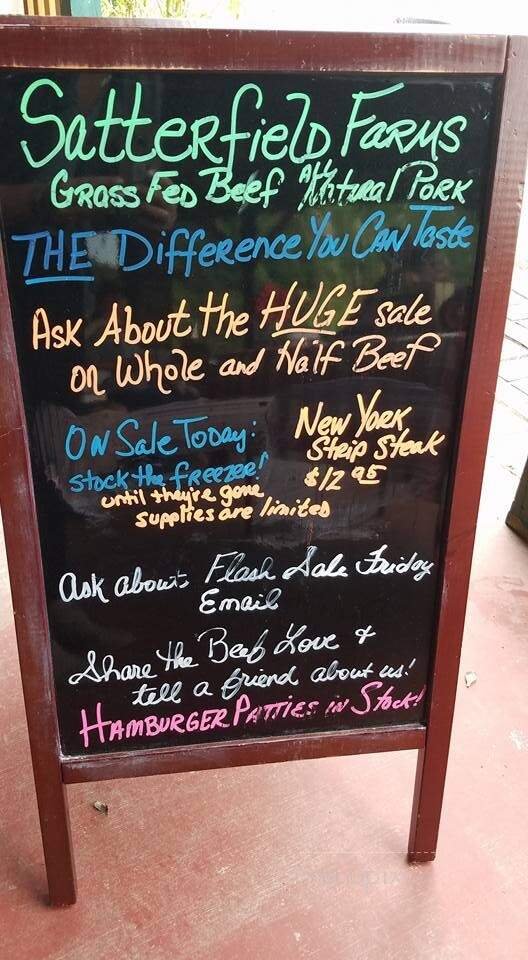 Satterfield Farms
Grass Fed Beef All Natural Pork
THE Difference You Can Taste
Ask About the HUGE sale
on Whole and Half Beef
On Sale Today:
stock the freezer!
until they're gone
supplies are limited
New York
Strip Steak
$12 95
Ask about Flash Sale Friday
Email
Share the Beef Love &
tell a friend about us!
Hamburger Patties in Stock!